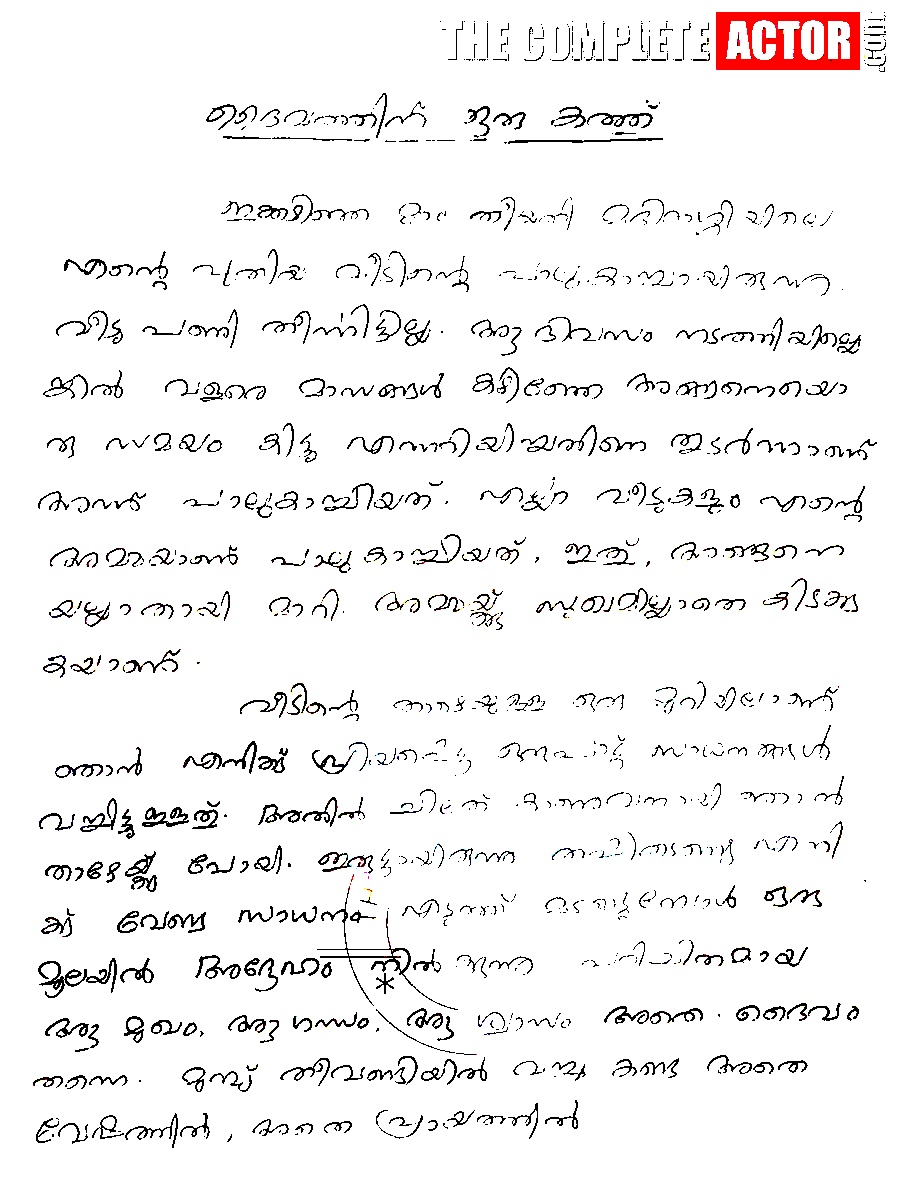 THE COMPLETE ACTOR .com
ദൈവത്തിന് ഒരു കത്ത്
ഇക്കഴിഞ്ഞ മാസ തിയതി
എന്റെ പുതിയ വീടിന്റെ പാലുകാച്ചായിരുന്നു.
വീടു പണി തീർന്നിട്ടില്ല. ആ ദിവസം നടത്തിയില്ലെ
ങ്കിൽ വളരെ മാസങ്ങൾ കഴിഞ്ഞേ അങ്ങനെയൊ
രു സമയം കിട്ടൂ എന്നറിയിച്ചതിനെ തുടർന്നാണ്
അന്ന് പാലുകാച്ചിയത്. എല്ലാ വീടുകളും എന്റെ
അമ്മയാണ് പാലു കാച്ചിയത്, ഇത്, അങ്ങനെ
യല്ലാതായി മാറി. അമ്മയ്ക്ക് സുഖമില്ലാതെ കിടക്കു
കയാണ്.
വീടിന്റെ താഴെയുള്ള ഒരു മുറിയിലാണ്
ഞാൻ എനിക്ക് പ്രിയപ്പെട്ട ഒരുപാട് സാധനങ്ങൾ
വച്ചിട്ടുള്ളത്. അതിൽ ചിലത് കാണുവാനായി ഞാൻ
താഴേയ്ക്ക് പോയി. ഇരുട്ടായിരുന്നു തപ്പിത്തടഞ്ഞു എനി
ക്ക് വേണ്ട സാധനം എടുത്ത് മടങ്ങുമ്പോൾ ഒരു
മൂലയിൽ അദ്ദേഹം നിൽക്കുന്നു പരിചിതമായ
ആ മുഖം, ആ ഗന്ധം, ആ ശ്വാസം അതെ. ദൈവം
തന്നെ. മുമ്പ് തീവണ്ടിയിൽ വച്ചു കണ്ട അതെ
വേഷത്തിൽ, അതെ പ്രായത്തിൽ